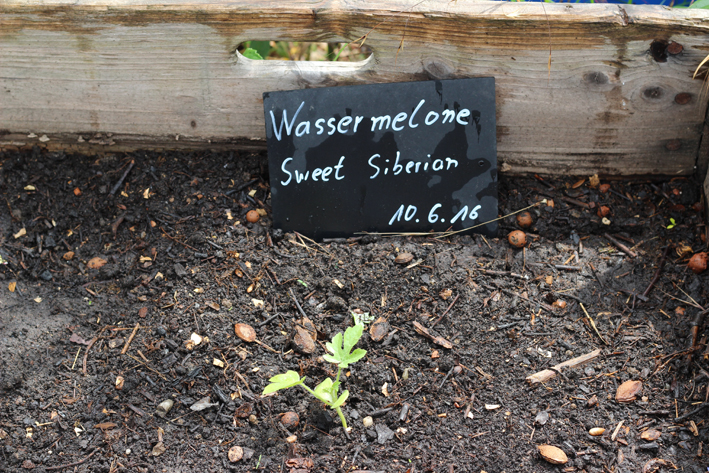 Wassermelone
Sweet Siberian
10.6.16